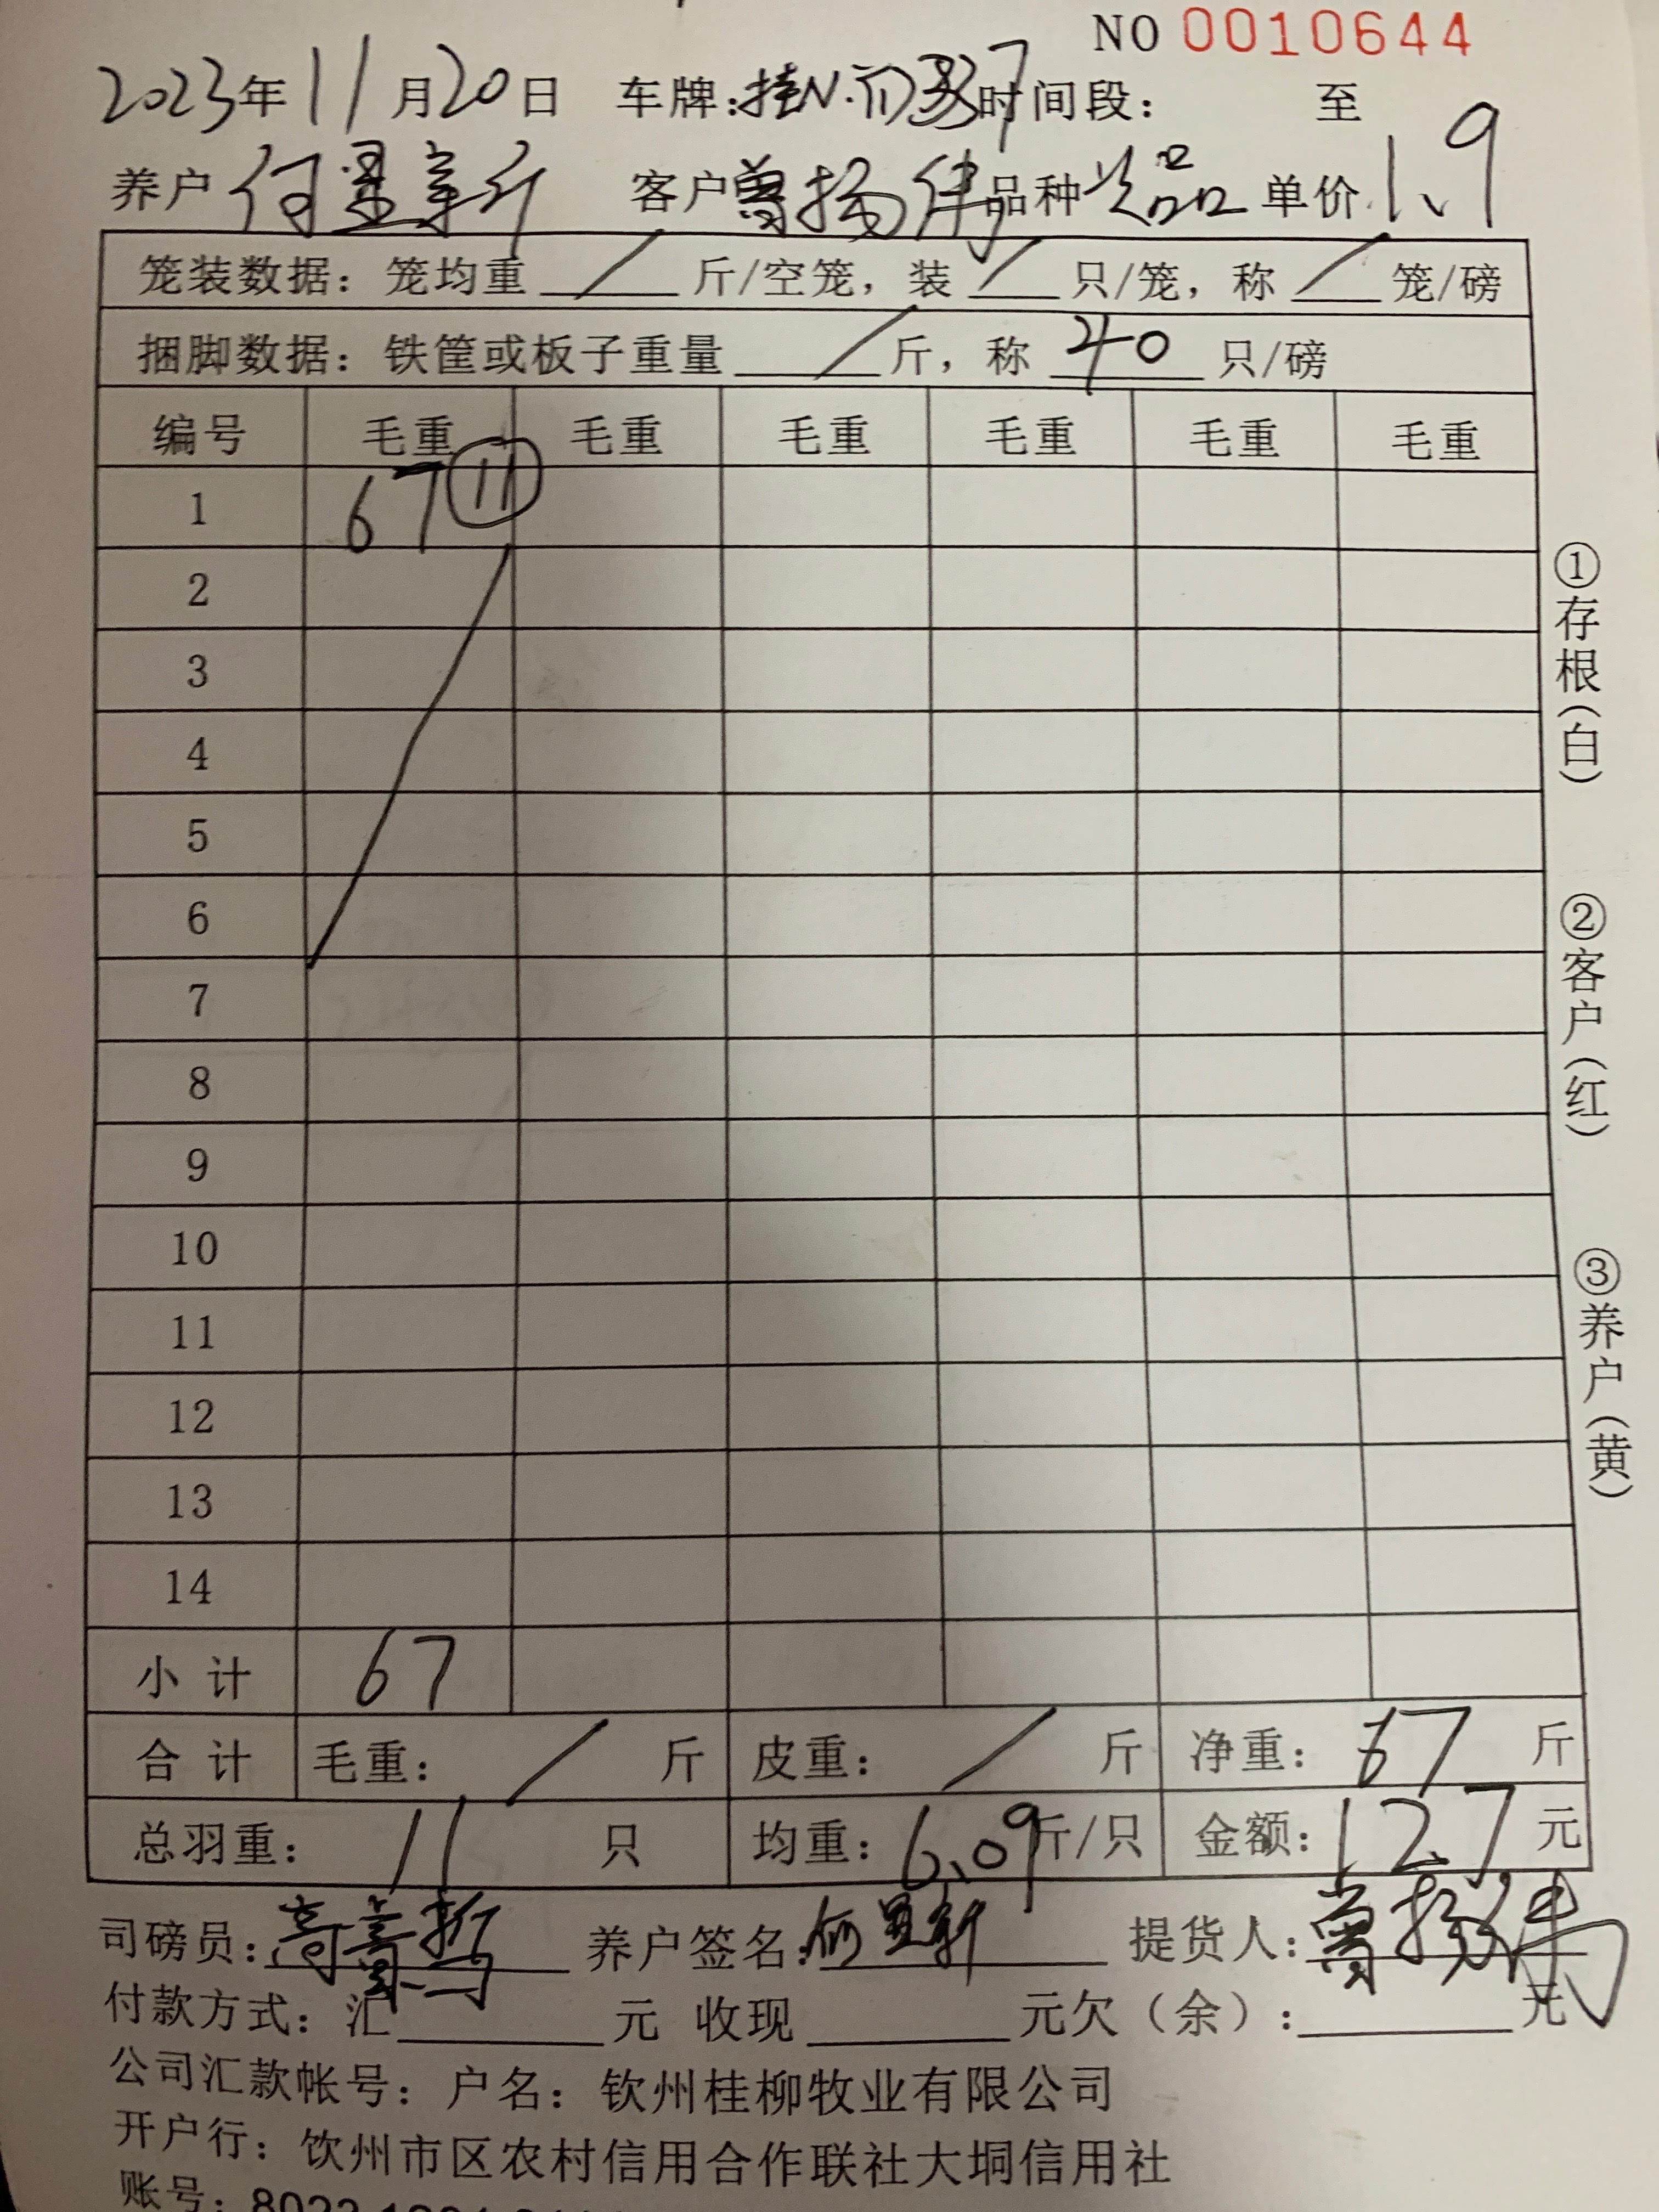 NO 0010644
2023年11月20日 车牌: 时间段: 至
养户 何 客户 曾扬伟 品种 次品 单价 1.9
笼装数据: 笼均重 / 斤/空笼, 装 / 只/笼, 称 / 笼/磅
捆脚数据: 铁筐或板子重量 / 斤, 称 40 只/磅
编号 毛重 毛重 毛重 毛重 毛重 毛重
1 67 ⑪
2
3
4
5
6
7
8
9
10
11
12
13
14
小计 67
合计 毛重: / 斤 皮重: / 斤 净重: 67 斤
总羽重: 11 只 均重: 6.09 斤/只 金额: 127 元
司磅员: 养户签名: 何 提货人: 曾扬伟
付款方式: 汇 元 收现 元欠(余): 元
公司汇款帐号: 户名: 钦州桂柳牧业有限公司
开户行: 饮州市区农村信用合作联社大垌信用社
账号:
①存根(白)
②客户(红)
③养户(黄)